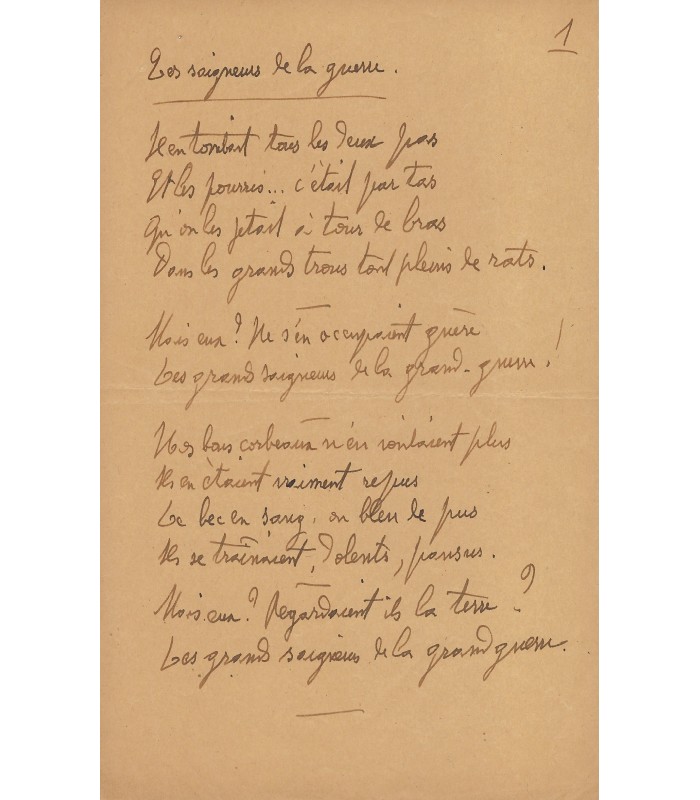 1
Les saigneurs de la guerre.
Il en tombait tous les deux pas
Et les pourris... c'était par tas
Qu'on les jetait à tour de bras
Dans les grands trous tout pleins de rats.
Mais eux? Ne s'en occupaient guère
Les grands saigneurs de la grand-guerre!
Nos bons corbeaux n'en voulaient plus
Ils en étaient vraiment repus
Le bec en sang, ou bleu de pus
Ils se traînaient, dolents, pansus.
Mais eux? Regardaient ils la terre?
Les grands saigneurs de la grand guerre.